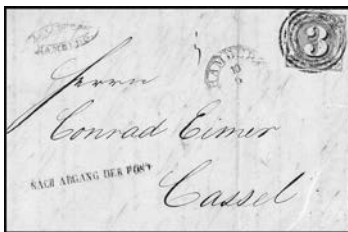 HAMBURG
HAMBURG
10
3
Herrn
Conrad Eimer
NACH ABGANG DER POST
Cassel